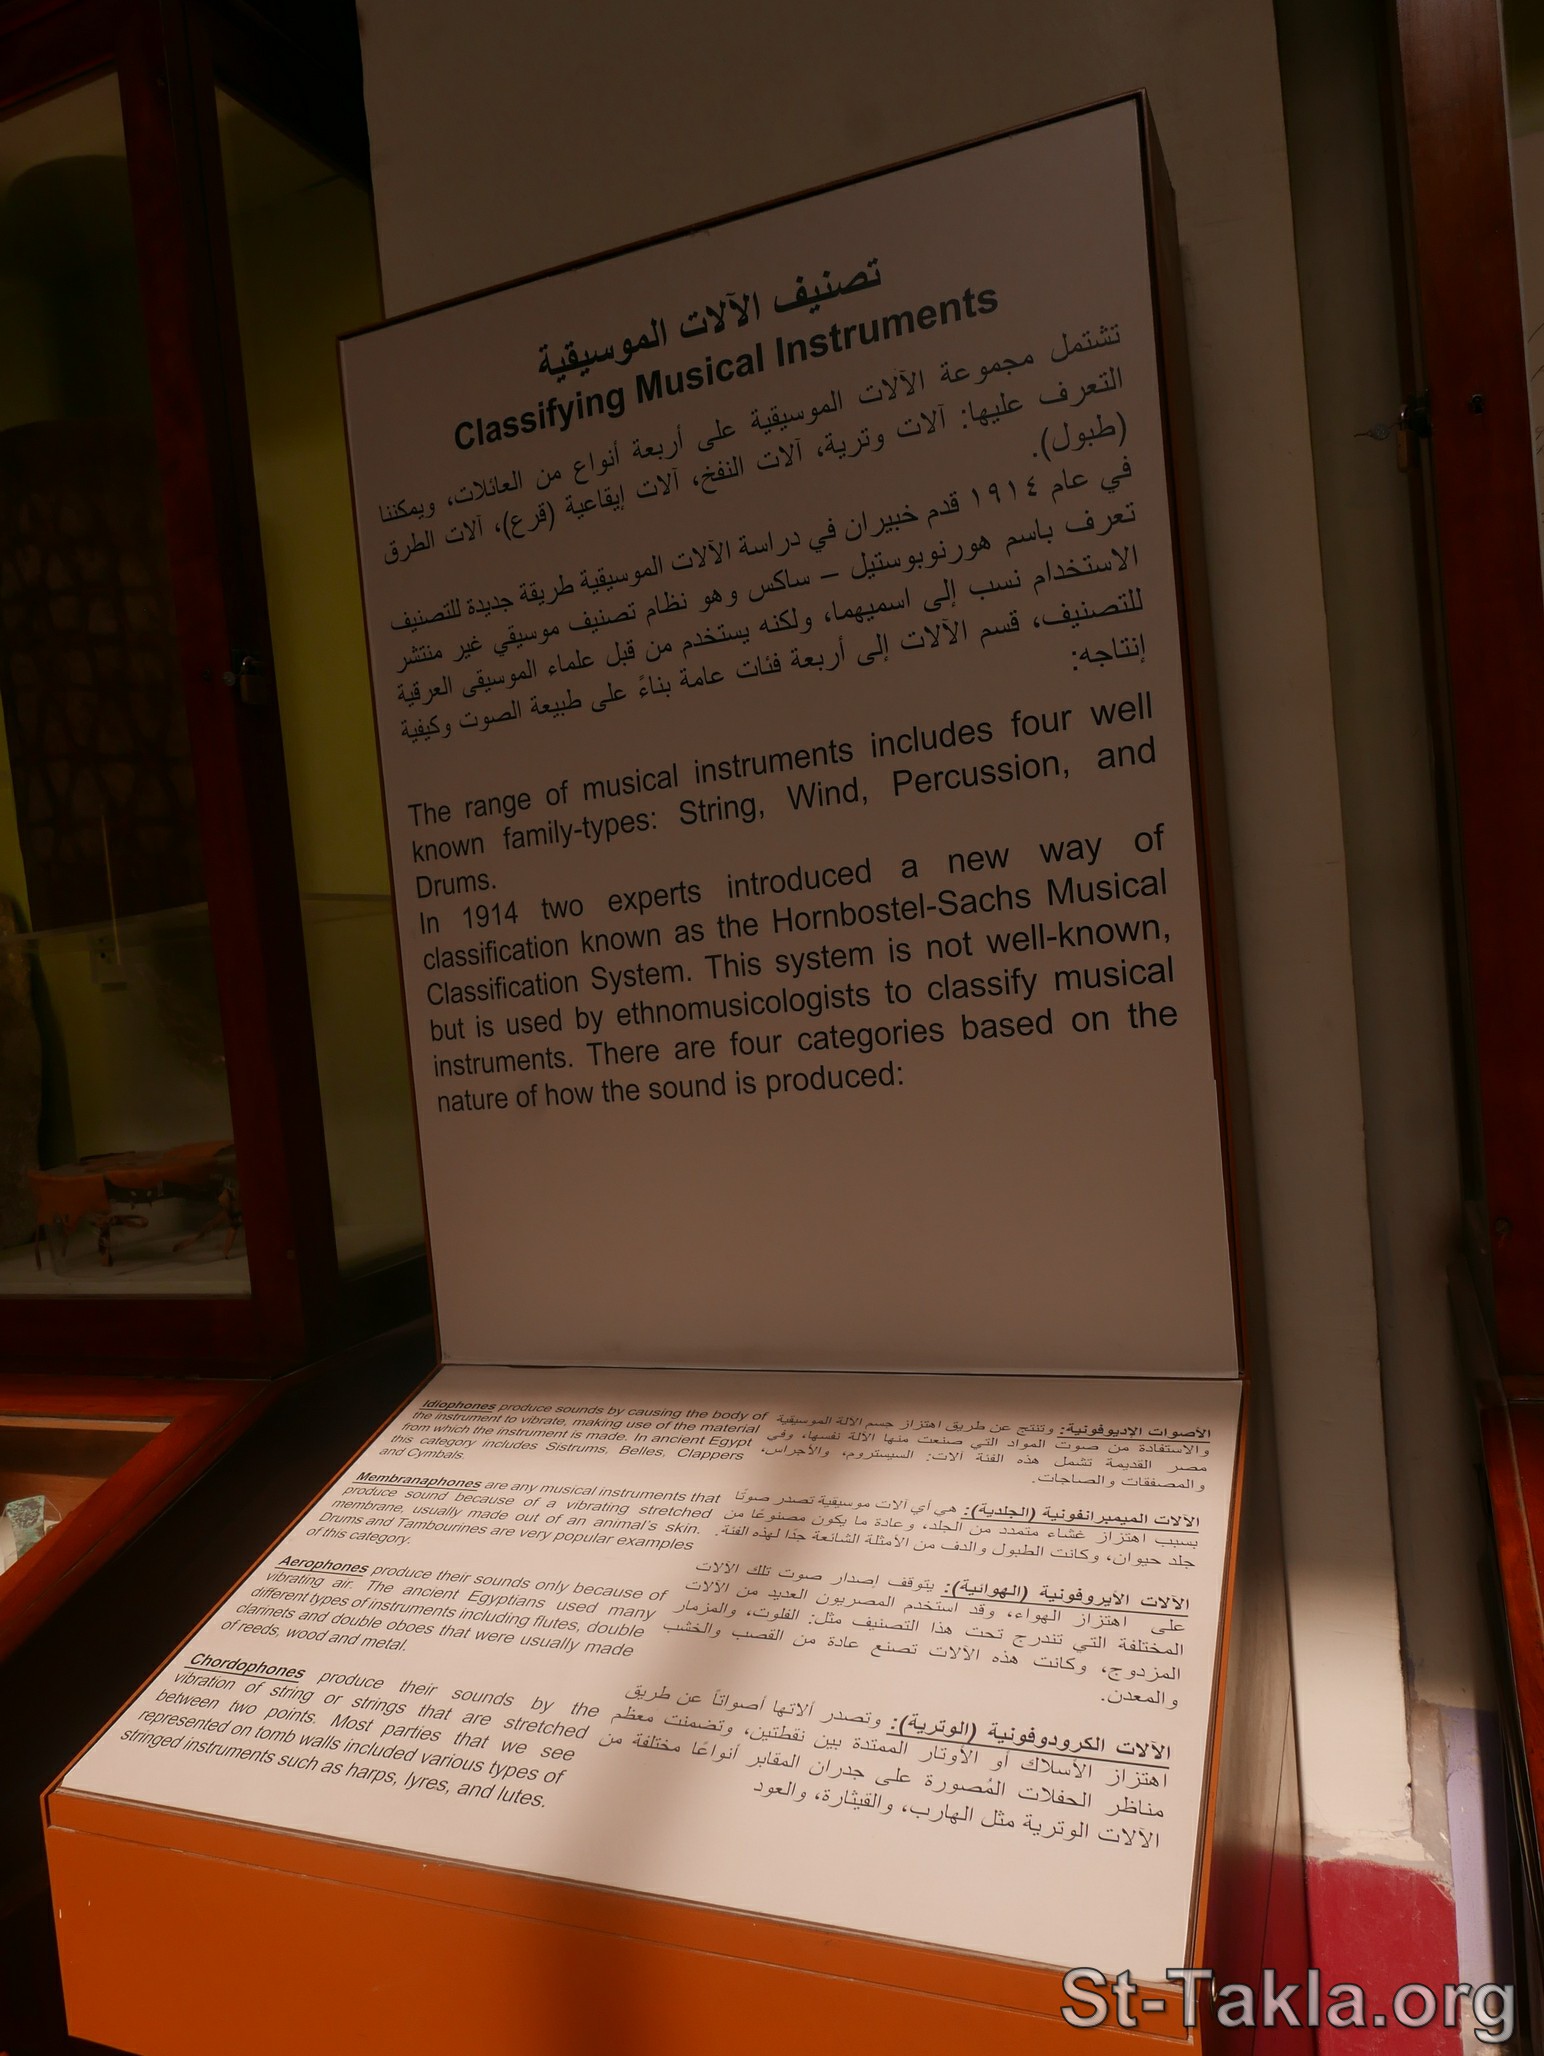 تصنيف الآلات الموسيقية
Classifying Musical Instruments
تشتمل مجموعة الآلات الموسيقية على أربعة أنواع من العائلات، ويمكننا
التعرف عليها: آلات وترية، آلات النفخ، آلات إيقاعية (قرع)، آلات الطرق
(طبول).
في عام ١٩١٤ قدم خبيران في دراسة الآلات الموسيقية طريقة جديدة للتصنيف
تعرف باسم هورنوبوستيل – ساكس وهو نظام تصنيف موسيقي غير منتشر
الاستخدام نسب إلى اسميهما، ولكنه يستخدم من قبل علماء الموسيقى العرقية
للتصنيف، قسم الآلات إلى أربعة فئات عامة بناءً على طبيعة الصوت وكيفية
إنتاجه:
The range of musical instruments includes four well
known family-types: String, Wind, Percussion, and
Drums.
In 1914 two experts introduced a new way of
classification known as the Hornbostel-Sachs Musical
Classification System. This system is not well-known,
but is used by ethnomusicologists to classify musical
instruments. There are four categories based on the
nature of how the sound is produced:
Idiophones produce sounds by causing the body of
the instrument to vibrate, making use of the material
from which the instrument is made. In ancient Egypt
this category includes Sistrums, Belles, Clappers
and Cymbals.
الأصوات الإديوفونية: وتنتج عن طريق اهتزاز جسم الآلة الموسيقية
والاستفادة من صوت المواد التي صنعت منها الآلة نفسها، وفي
مصر القديمة تشمل هذه الفئة آلات: السيستروم، والأجراس،
والمصفقات والصاجات.
Membranaphones are any musical instruments that
produce sound because of a vibrating stretched
membrane, usually made out of an animal's skin.
Drums and Tambourines are very popular examples
of this category.
الآلات الميمبرانفونية (الجلدية): هي أي آلات موسيقية تصدر صوتًا
بسبب اهتزاز غشاء متمدد من الجلد، وعادة ما يكون مصنوعًا من
جلد حيوان، وكانت الطبول والدف من الأمثلة الشائعة جدًا لهذه الفئة.
Aerophones produce their sounds only because of
vibrating air. The ancient Egyptians used many
different types of instruments including flutes, double
clarinets and double oboes that were usually made
of reeds, wood and metal.
الآلات الأيروفونية (الهوائية): يتوقف إصدار صوت تلك الآلات
على اهتزاز الهواء، وقد استخدم المصريون العديد من الآلات
المختلفة التي تندرج تحت هذا التصنيف مثل: الفلوت، والمزمار
المزدوج، وكانت هذه الآلات تصنع عادة من القصب والخشب
والمعدن.
Chordophones produce their sounds by the
vibration of string or strings that are stretched
between two points. Most parties that we see
represented on tomb walls included various types of
stringed instruments such as harps, lyres, and lutes.
الآلات الكرودوفونية (الوترية): وتصدر آلاتها أصواتاً عن طريق
اهتزاز الأسلاك أو الأوتار الممتدة بين نقطتين، وتضمنت معظم
مناظر الحفلات المُصورة على جدران المقابر أنواعًا مختلفة من
الآلات الوترية مثل الهارب، والقيثارة، والعود
St-Takla.org